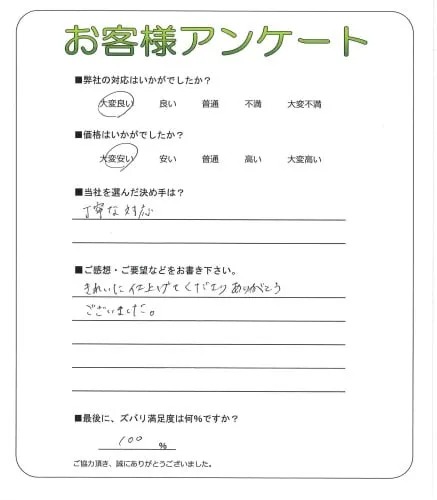 お客様アンケート
■弊社の対応はいかがでしたか?
大変良い 良い 普通 不満 大変不満
■価格はいかがでしたか?
大変安い 安い 普通 高い 大変高い
■当社を選んだ決め手は?
丁寧な対応
■ご感想・ご要望などをお書き下さい。
きれいに仕上げてくださりありがとう
ございました。
■最後に、ズバリ満足度は何%ですか?
100 %
ご協力頂き、誠にありがとうございました。